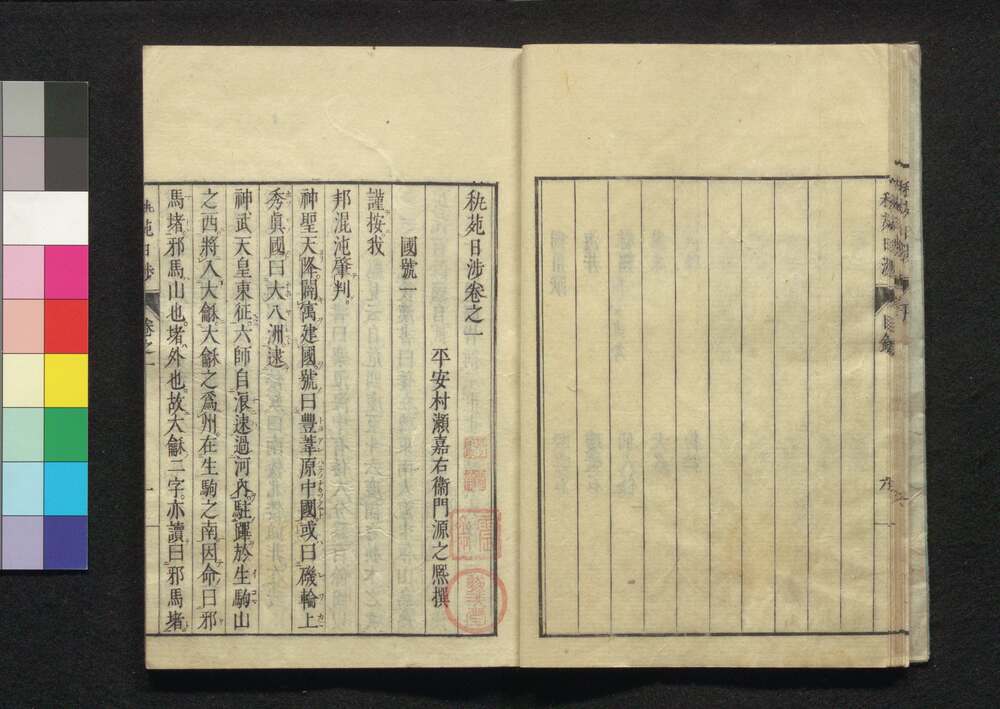 秇苑日渉卷之一
平安村瀬嘉右衞門源之熈撰
國號一
謹按我
邦混沌肇判。
神聖天降闢㝢建國號曰豐葦原中國或曰磯輪上
秀眞國曰大八洲逮
神武天皇東征六師自浪速過河内駐蹕於生駒山
之西將入大龢大龢之爲州在生駒之南因命曰邪
馬堵邪馬山也堵外也故大龢二字亦讀曰邪馬堵
秇苑日渉
卷之一
一